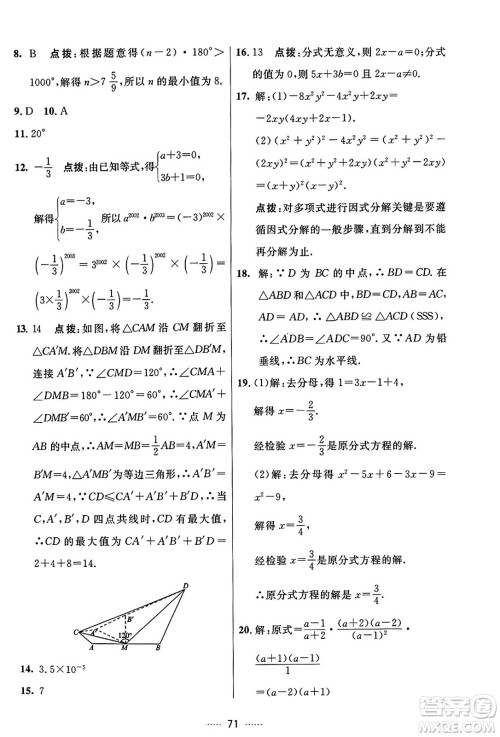 8. B 点拨：根据题意得(n－2)·180°＞
1000°,解得 n＞7 5/9,所以 n 的最小值为 8.
9. D 10. A
11. 20°
12. －1/3 点拨：由已知等式,得{a＋3＝0, 3b＋1＝0,
解得{a＝－3, b＝－1/3, 所以 a²⁰⁰²·b²⁰⁰³＝(－3)²⁰⁰²×
(－1/3)²⁰⁰³＝3²⁰⁰²×(－1/3)²⁰⁰²×(－1/3)＝
(3×1/3)²⁰⁰²×(－1/3)＝－1/3.
13. 14 点拨：如图,将△CAM 沿 CM 翻折至
△CA′M,将△DBM 沿 DM 翻折至△DB′M,
连接 A′B′,∵∠CMD＝120°,∴∠CMA′＋
∠DMB′＝180°－120°＝60°.∴∠A′MB′＝
120°－(180°－120°)＝60°.∵点 M 为
AB 的中点,∴A′M＝B′M＝AM＝1/2 AB＝4.
∴△A′MB′为等边三角形,∴A′B′＝
MA′＝4,∵CD≤CA′＋A′B′＋B′D,∴当
C、D、A′、B′四点共线时,CD 有最大值,
∴CD 的最大值为 CA′＋A′B′＋B′D＝
2＋4＋8＝14.
D
C
A′
120°
A M B
14. 3.5×10⁻⁵
15. 7
16. 13 点拨：分式无意义,则 2x－a＝0;分式
的值为 0,则 5x＋a＝0且2x－a≠0.
17. 解：(1)－8x²y²－4x²y＋2xy＝
－2xy(4xy＋2x－1).
(2)(x²＋y²)²－4x²y²＝(x²＋y²＋
2xy)(x²＋y²－2xy)＝(x＋y)²(x－y)².
点拨：对多项式进行因式分解关键是要
遵循因式分解的一般步骤,直到不能
再分解为止.
18. 解：∵D 为 BC 的中点,∴BD＝CD.在
△ABD 和△ACD 中,AB＝AC,BD＝CD,
AD＝AD,∴△ABD≌△ACD(SSS).
∴∠ADB＝∠ADC＝90°.又∵AD 为铅
垂线,∴BC 为水平线.
19. 解：(1)去分母,得 1＝3x－1＋4,
解得 x＝－2/3.
经检验 x＝－2/3是原分式方程的解.
∴原分式方程的解为 x＝－2/3.
(2)解：去分母,得 x²－5x＋6－3x－
9＝x²－9,
解得 x＝3/4.
经检验 x＝3/4是原分式方程的解.
∴原分式方程的解为 x＝3/4.
20. 解：原式＝(a－1)/(a＋2)·(a＋2)(a－2)/(a－1)²÷
1/((a＋1)(a－1))＝(a－2)/(a－1)·
(a＋1)(a－1)＝(a－2)(a＋1).
71